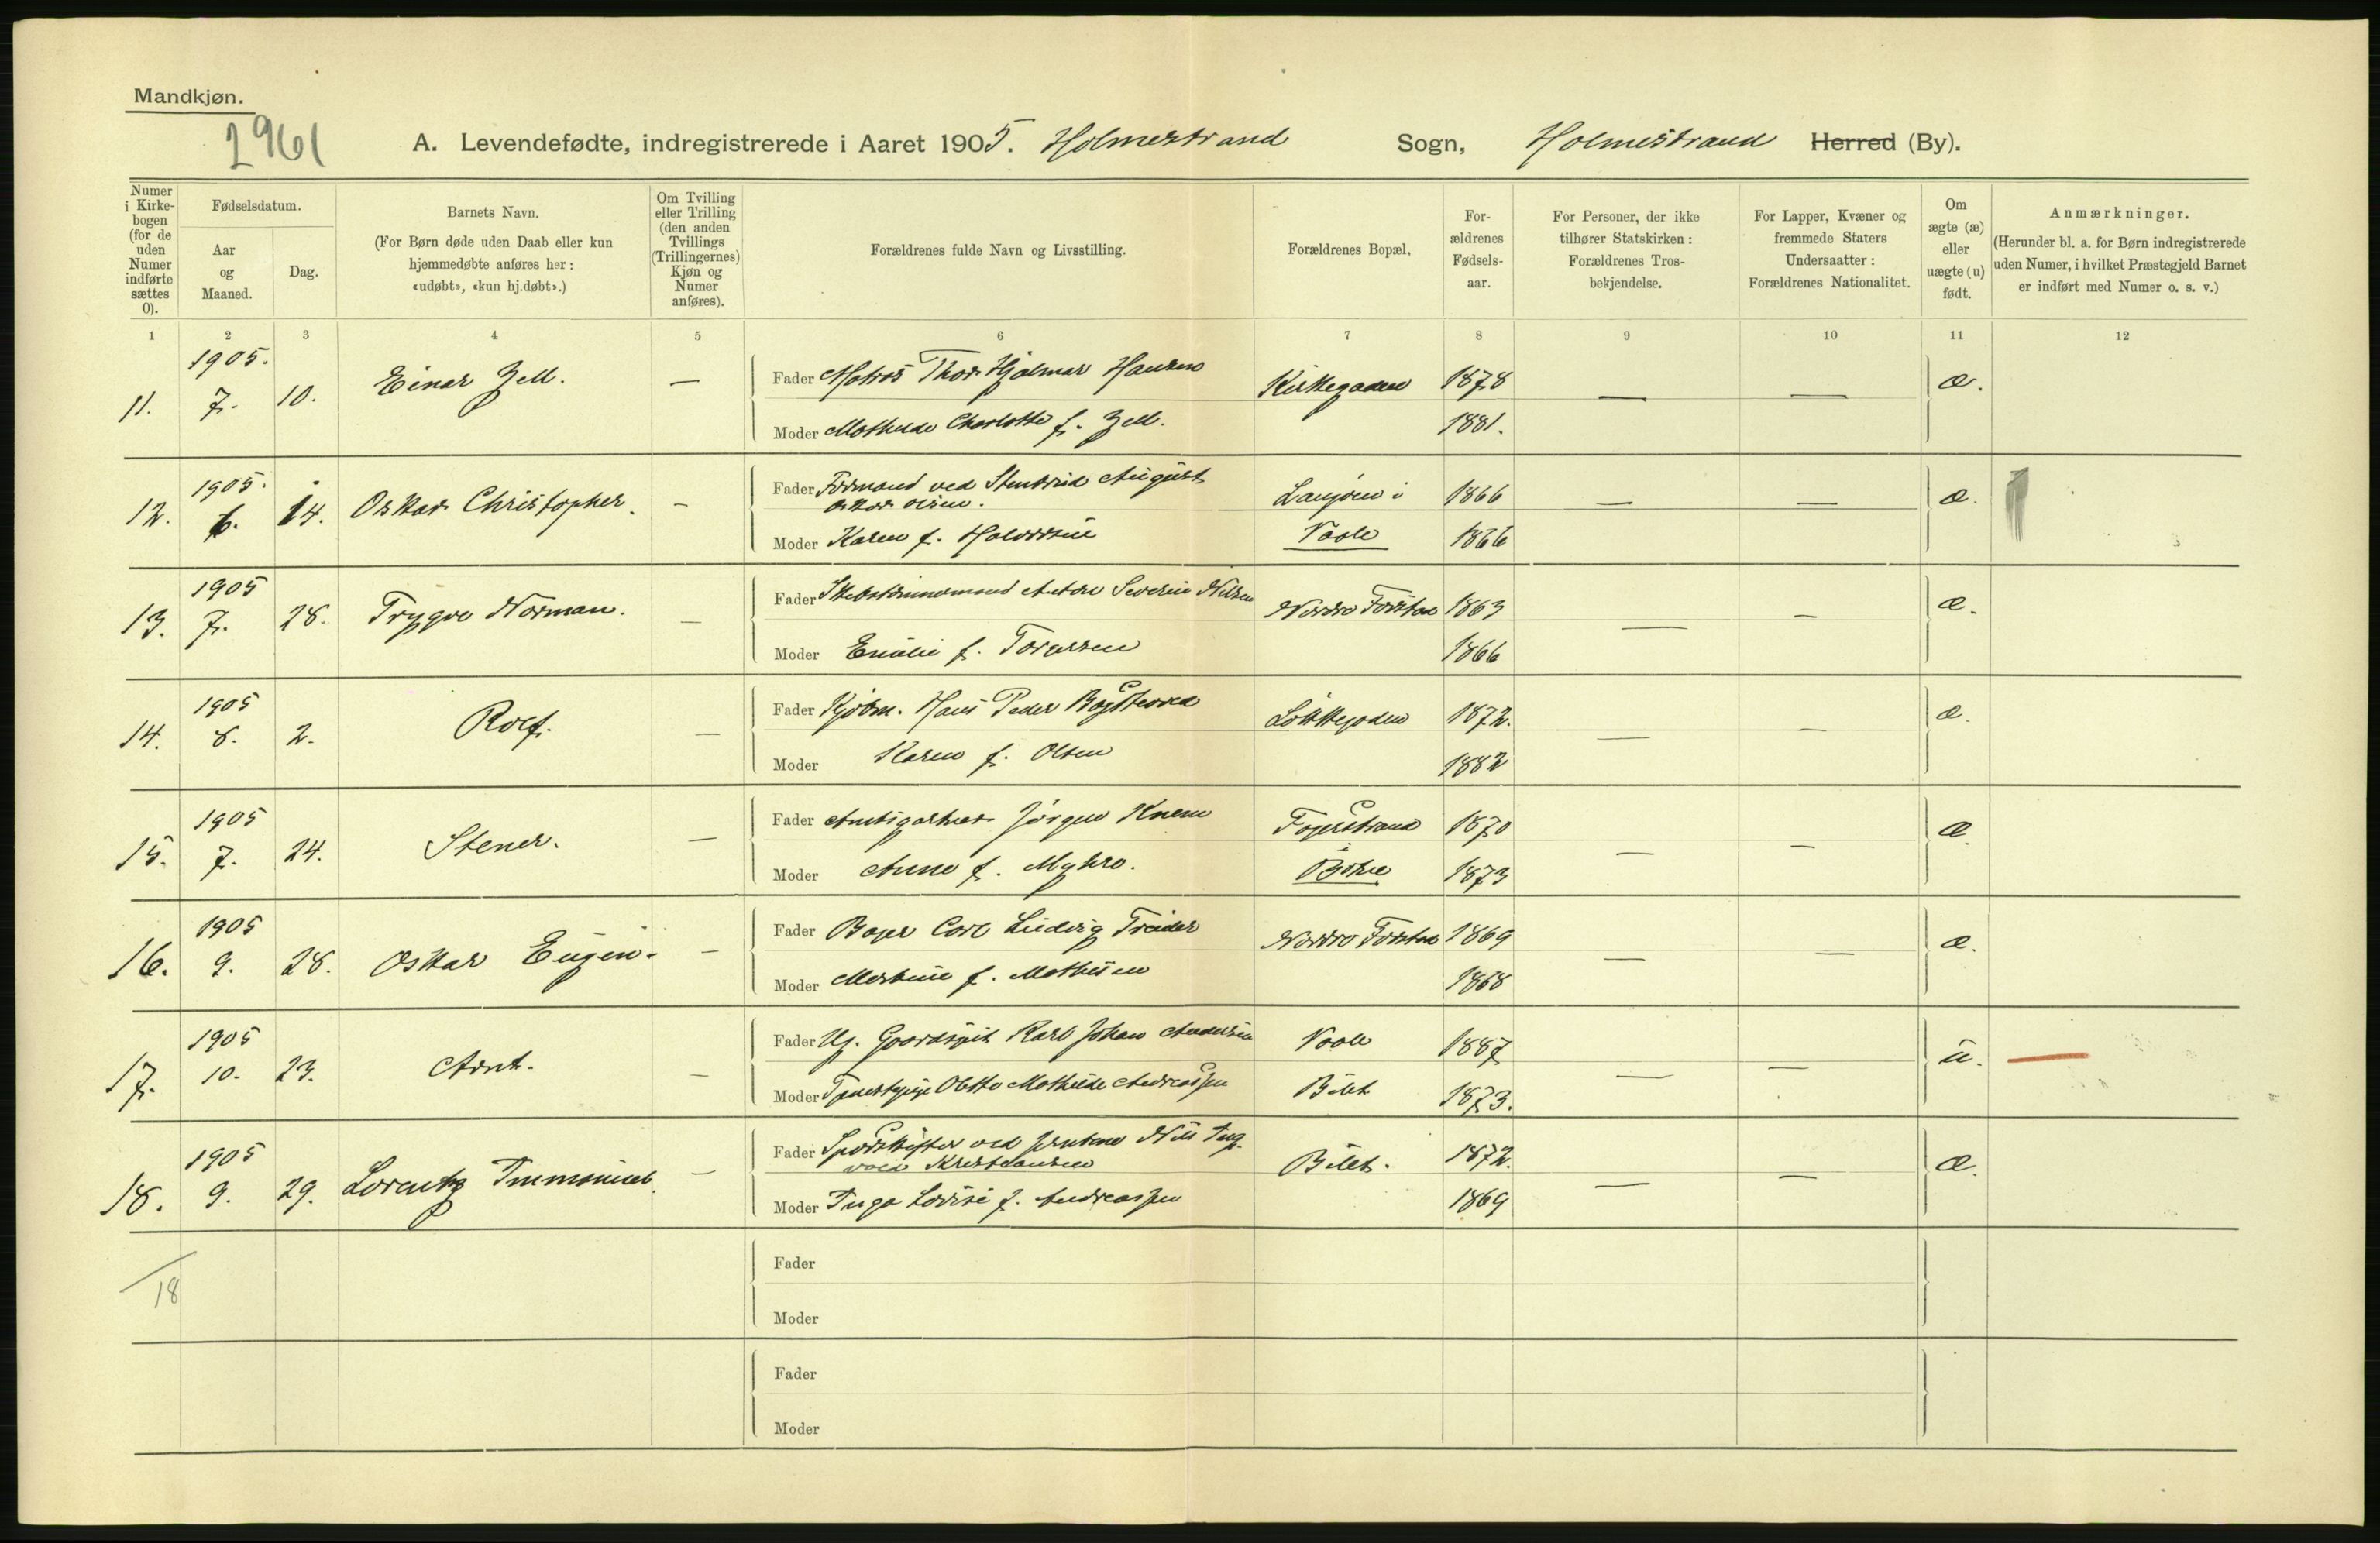 Mandkjøn.
2961
A. Levendefødte, indregistrerede i Aaret 1905. Holmestrand Sogn, Holmestrand Herred (By).
Numer i Kirkebogen (for de uden Numer indførte sættes 0).
Fødselsdatum.
Aar og Maaned.
Dag.
Barnets Navn.
(For Børn døde uden Daab eller kun hjemmedøbte anføres her: «udøbt», «kun hj.døbt».)
Om Tvilling eller Trilling (den anden Tvillings (Trillingernes) Kjøn og Numer anføres).
Forældrenes fulde Navn og Livsstilling.
Forældrenes Bopæl.
Forældrenes Fødselsaar.
For Personer, der ikke tilhører Statskirken: Forældrenes Trosbekjendelse.
For Lapper, Kvæner og fremmede Staters Undersaatter: Forældrenes Nationalitet.
Om ægte (æ) eller uægte (u) født.
Anmærkninger.
(Herunder bl. a. for Børn indregistrerede uden Numer, i hvilket Præstegjeld Barnet er indført med Numer o. s. v.)
1 2 3 4 5 6 7 8 9 10 11 12
11. 1905. 7. 10. Einar Zell. — Fader Matros Thor Hjalmar Hansen Kirkegaden 1878 — — æ.
Moder Mathilde Charlotte f. Zell. 1881.
12. 1905. 6. 14. Oskar Christopher. — Fader Formand ved Stenbrud August Oskar Olsen. Langøen i 1866 — — æ.
Moder Karen f. Halvorsen Vaale 1866
13. 1905 7. 28. Trygve Norman. — Fader Skibstømmermand Anton Severin Nilsen Nordre Forstad 1863 — — æ.
Moder Emilie f. 1866
14. 1905 8. 2. Rolf. — Fader Kjøbm. Hans Peder Løkkegaden 1872. — — æ.
Moder Karen f. Olsen 1882
15. 1905 7. 24. Stener. — Fader Amtsgartner Jørgen Knem Fagerstrand 1870 — — æ.
Moder Anne f. Myhre. i Botne 1873
16. 1905 9. 28. Oskar Eugen. — Fader Bager Carl Ludvig Treider Nordre Forstad 1869 — — æ.
Moder Martine f. Mathisen 1868
17. 1905 10. 23. Arnt. — Fader Ug. Karl Johan Andersen Vaale 1887 — — u.
Moder Tjenestepige Mathilde Andreassen Bilet 1873.
18. 1905 9. 29. Lorentz Immanuel. — Fader Sporskifter ved Jernbane Nils Ingvald Kristiansen Bilet. 1872. — — æ.
Moder Inga Lovise f. Andreassen 1869
18
Fader
Moder
Fader
Moder